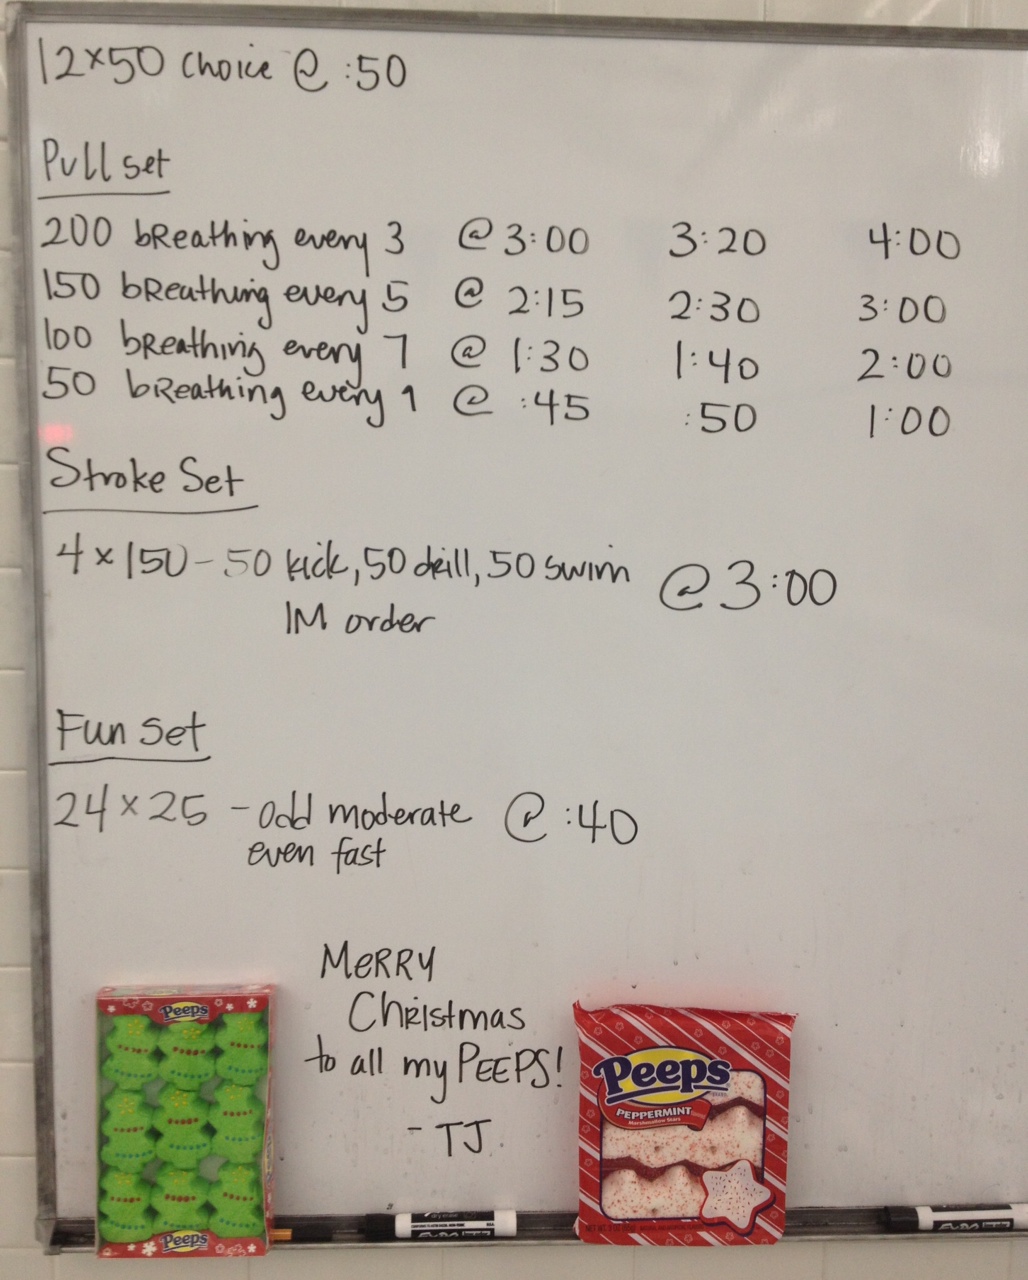 12×50 choice @ :50
Pull set
200 breathing every 3 @ 3:00 3:20 4:00
150 breathing every 5 @ 2:15 2:30 3:00
100 breathing every 7 @ 1:30 1:40 2:00
50 breathing every 9 @ :45 :50 1:00
Stroke Set
4×150 - 50 kick, 50 drill, 50 swim @ 3:00
IM order
Fun Set
24×25 - odd moderate @ :40
even fast
MERRY
Christmas
to all my PEEPS!
- TJ
Peeps
Peeps
Peeps
PEPPERMINT
Marshmallow Stars